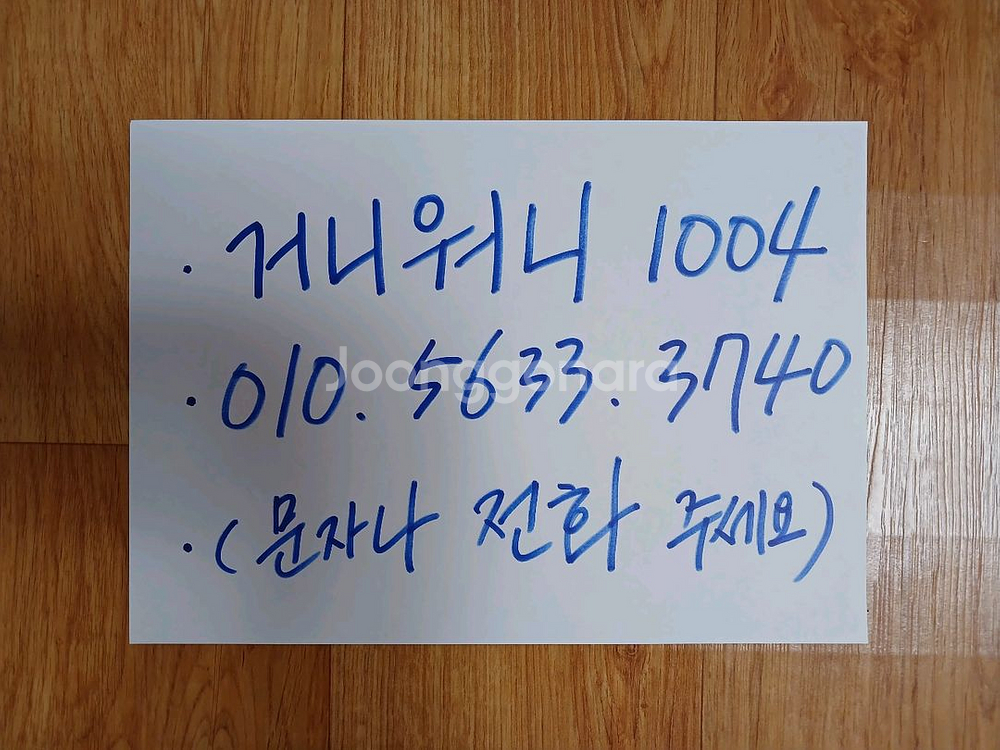 · 거니워니 1004
· 010. 5633. 3740
Joonggonara
· (문자나 전화 주세요)